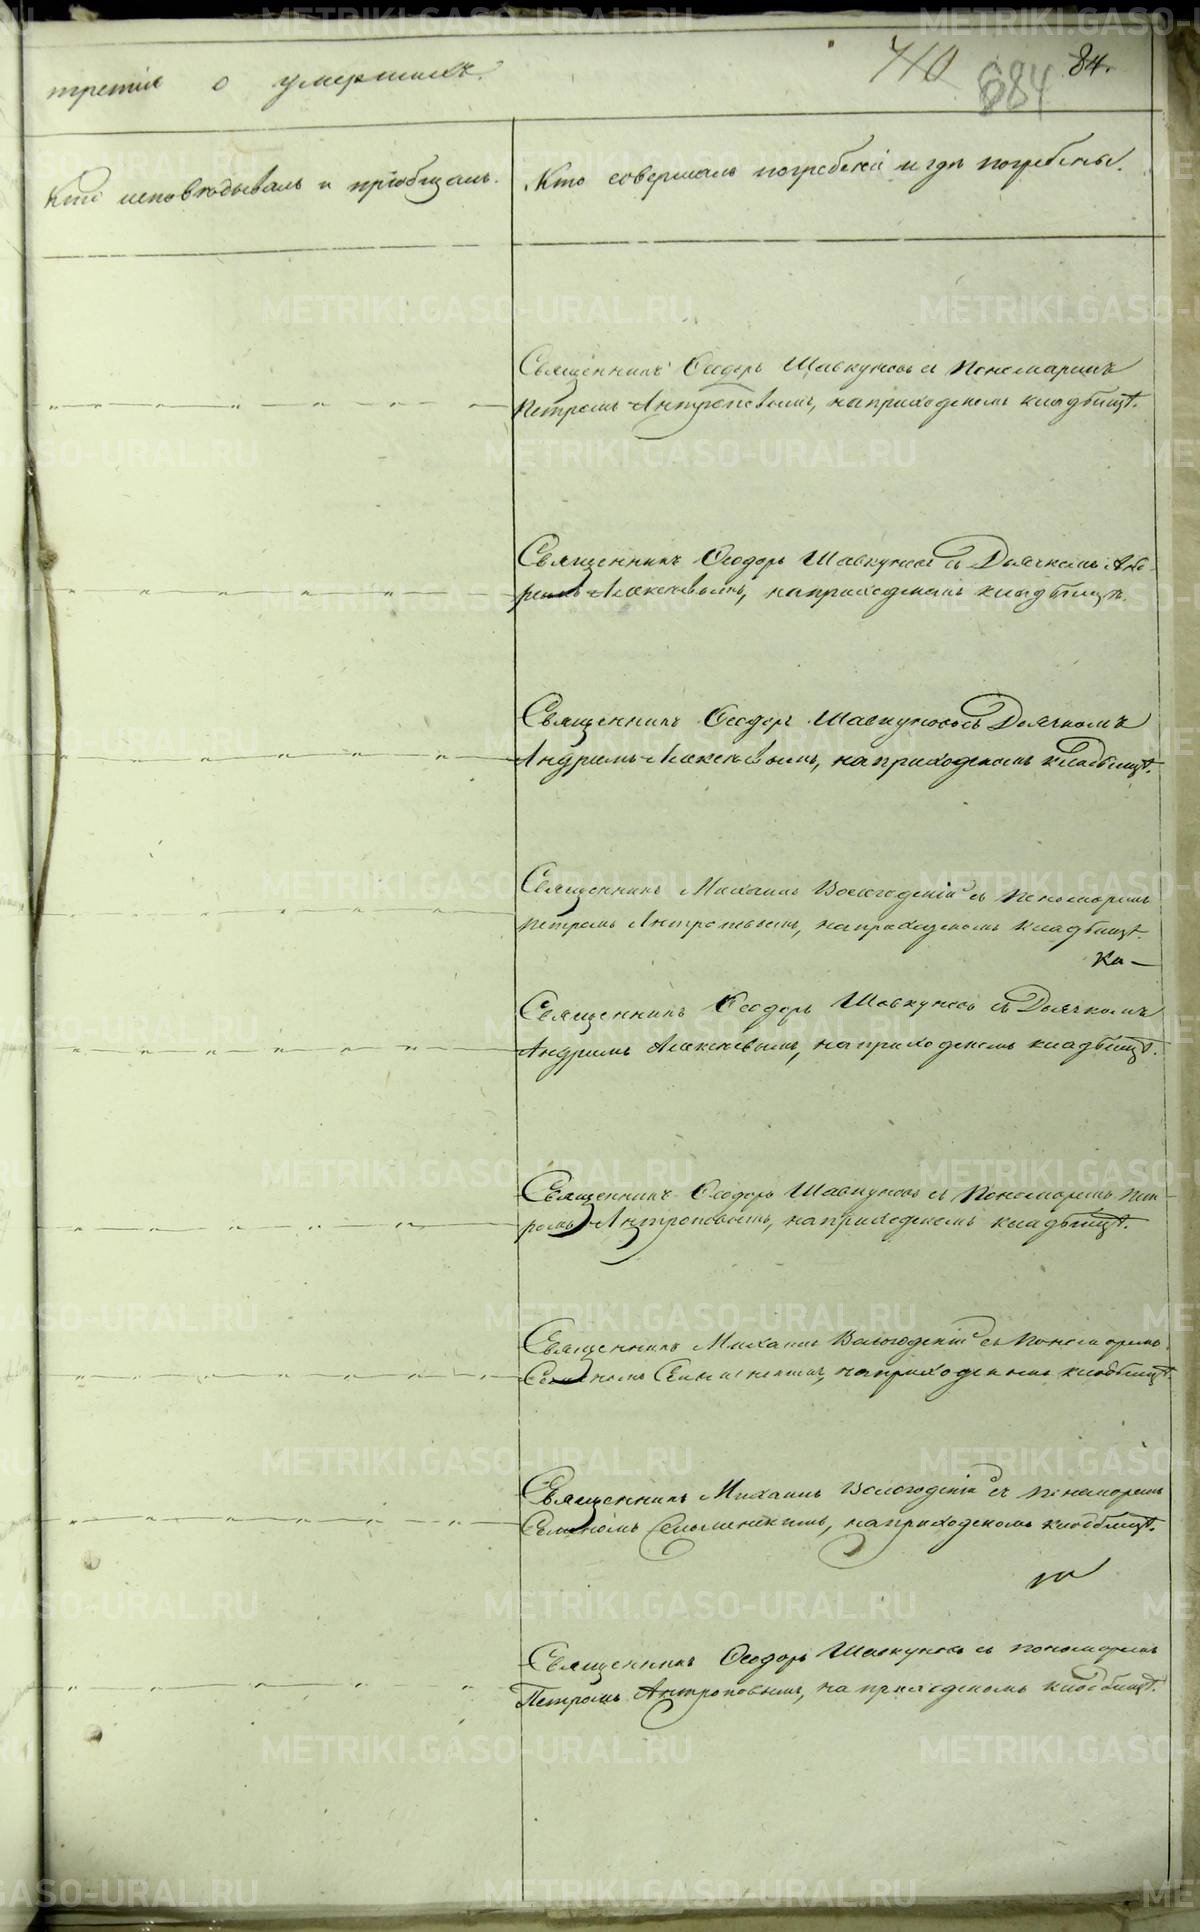 третія о умершихъ.
710
684
84.
Кто исповѣдывалъ и пріобщалъ.
Кто совершалъ погребеніе и гдѣ погребены.
Священникъ Ѳеодоръ Шавкуновъ съ Пономаремъ
Петромъ Антроповымъ, на приходскомъ кладбищѣ.
Священникъ Ѳеодоръ Шавкуновъ съ Дьячкомъ Анд-
реемъ Алексѣевымъ, на приходскомъ кладбищѣ.
Священникъ Ѳеодоръ Шавкуновъ съ Дьячкомъ
Андреемъ Алексѣевымъ, на приходскомъ кладбищѣ.
Священникъ Михаилъ Вологодскій съ Пономаремъ
Петромъ Антроповымъ, на приходскомъ кладбищѣ.
Ка-
Священникъ Ѳеодоръ Шавкуновъ съ Дьячкомъ
Андреемъ Алексѣевымъ, на приходскомъ кладбищѣ.
Священникъ Ѳеодоръ Шавкуновъ съ Пономаремъ Пет-
ромъ Антроповымъ, на приходскомъ кладбищѣ.
Священникъ Михаилъ Вологодскій съ Пономаремъ
на приходскомъ кладбищѣ.
Священникъ Михаилъ Вологодскій съ Пономаремъ
на приходскомъ кладбищѣ.
Священникъ Ѳеодоръ Шавкуновъ съ пономаремъ
Петромъ Антроповымъ, на приходскомъ кладбищѣ.
METRIKI.GASO-URAL.RU